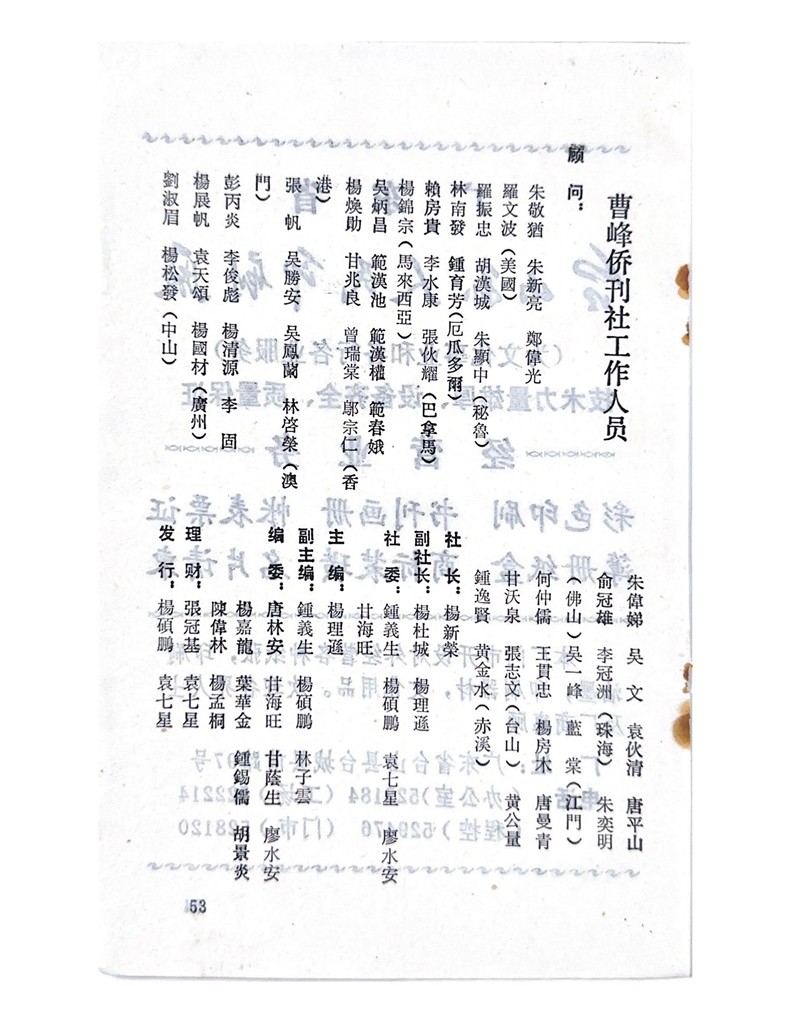 曹峰侨刊社工作人员
顾 问：
朱敬猶 朱新亮 鄭偉光
羅文波（美國）
羅振忠 胡漢城 朱顯中（秘魯）
林南發 鍾育芳（厄瓜多爾）
賴房貴 李水康 張伙耀（巴拿馬）
楊錦宗（馬來西亞）
吴炳昌 範漢池 範漢權 範春娥
楊煥勛 甘兆良 曾瑞棠 鄔宗仁（香
港）
張 帆 吴勝安 吴鳳蘭 林啓榮（澳
門）
彭丙炎 李俊彪 楊清源 李 固
楊展帆 袁天頌 楊國材（廣州）
劉淑眉 楊松發（中山）
朱偉娣 吴 文 袁伙清 唐平山
俞冠雄 李冠洲（珠海） 朱奕明
（佛山）吴一峰 藍 棠（江門）
何仲儒 王貫忠 楊房木 唐曼青
甘沃泉 張志文（台山） 黄公量
鍾逸賢 黄金水（赤溪）
社 长：楊新榮
副社长：楊杜城 楊理遜
社 委：鍾義生 楊碩鵬 袁七星 廖水安
甘海旺
主 编：楊理遜
副主编：鍾義生 楊碩鵬 林子雲
编 委：唐林安 甘海旺 甘蔭生 廖水安
楊嘉龍 葉華金 鍾錫儒 胡景炎
陳偉林 楊孟桐
理 财：張冠基 袁七星
发 行：楊碩鵬 袁七星
53